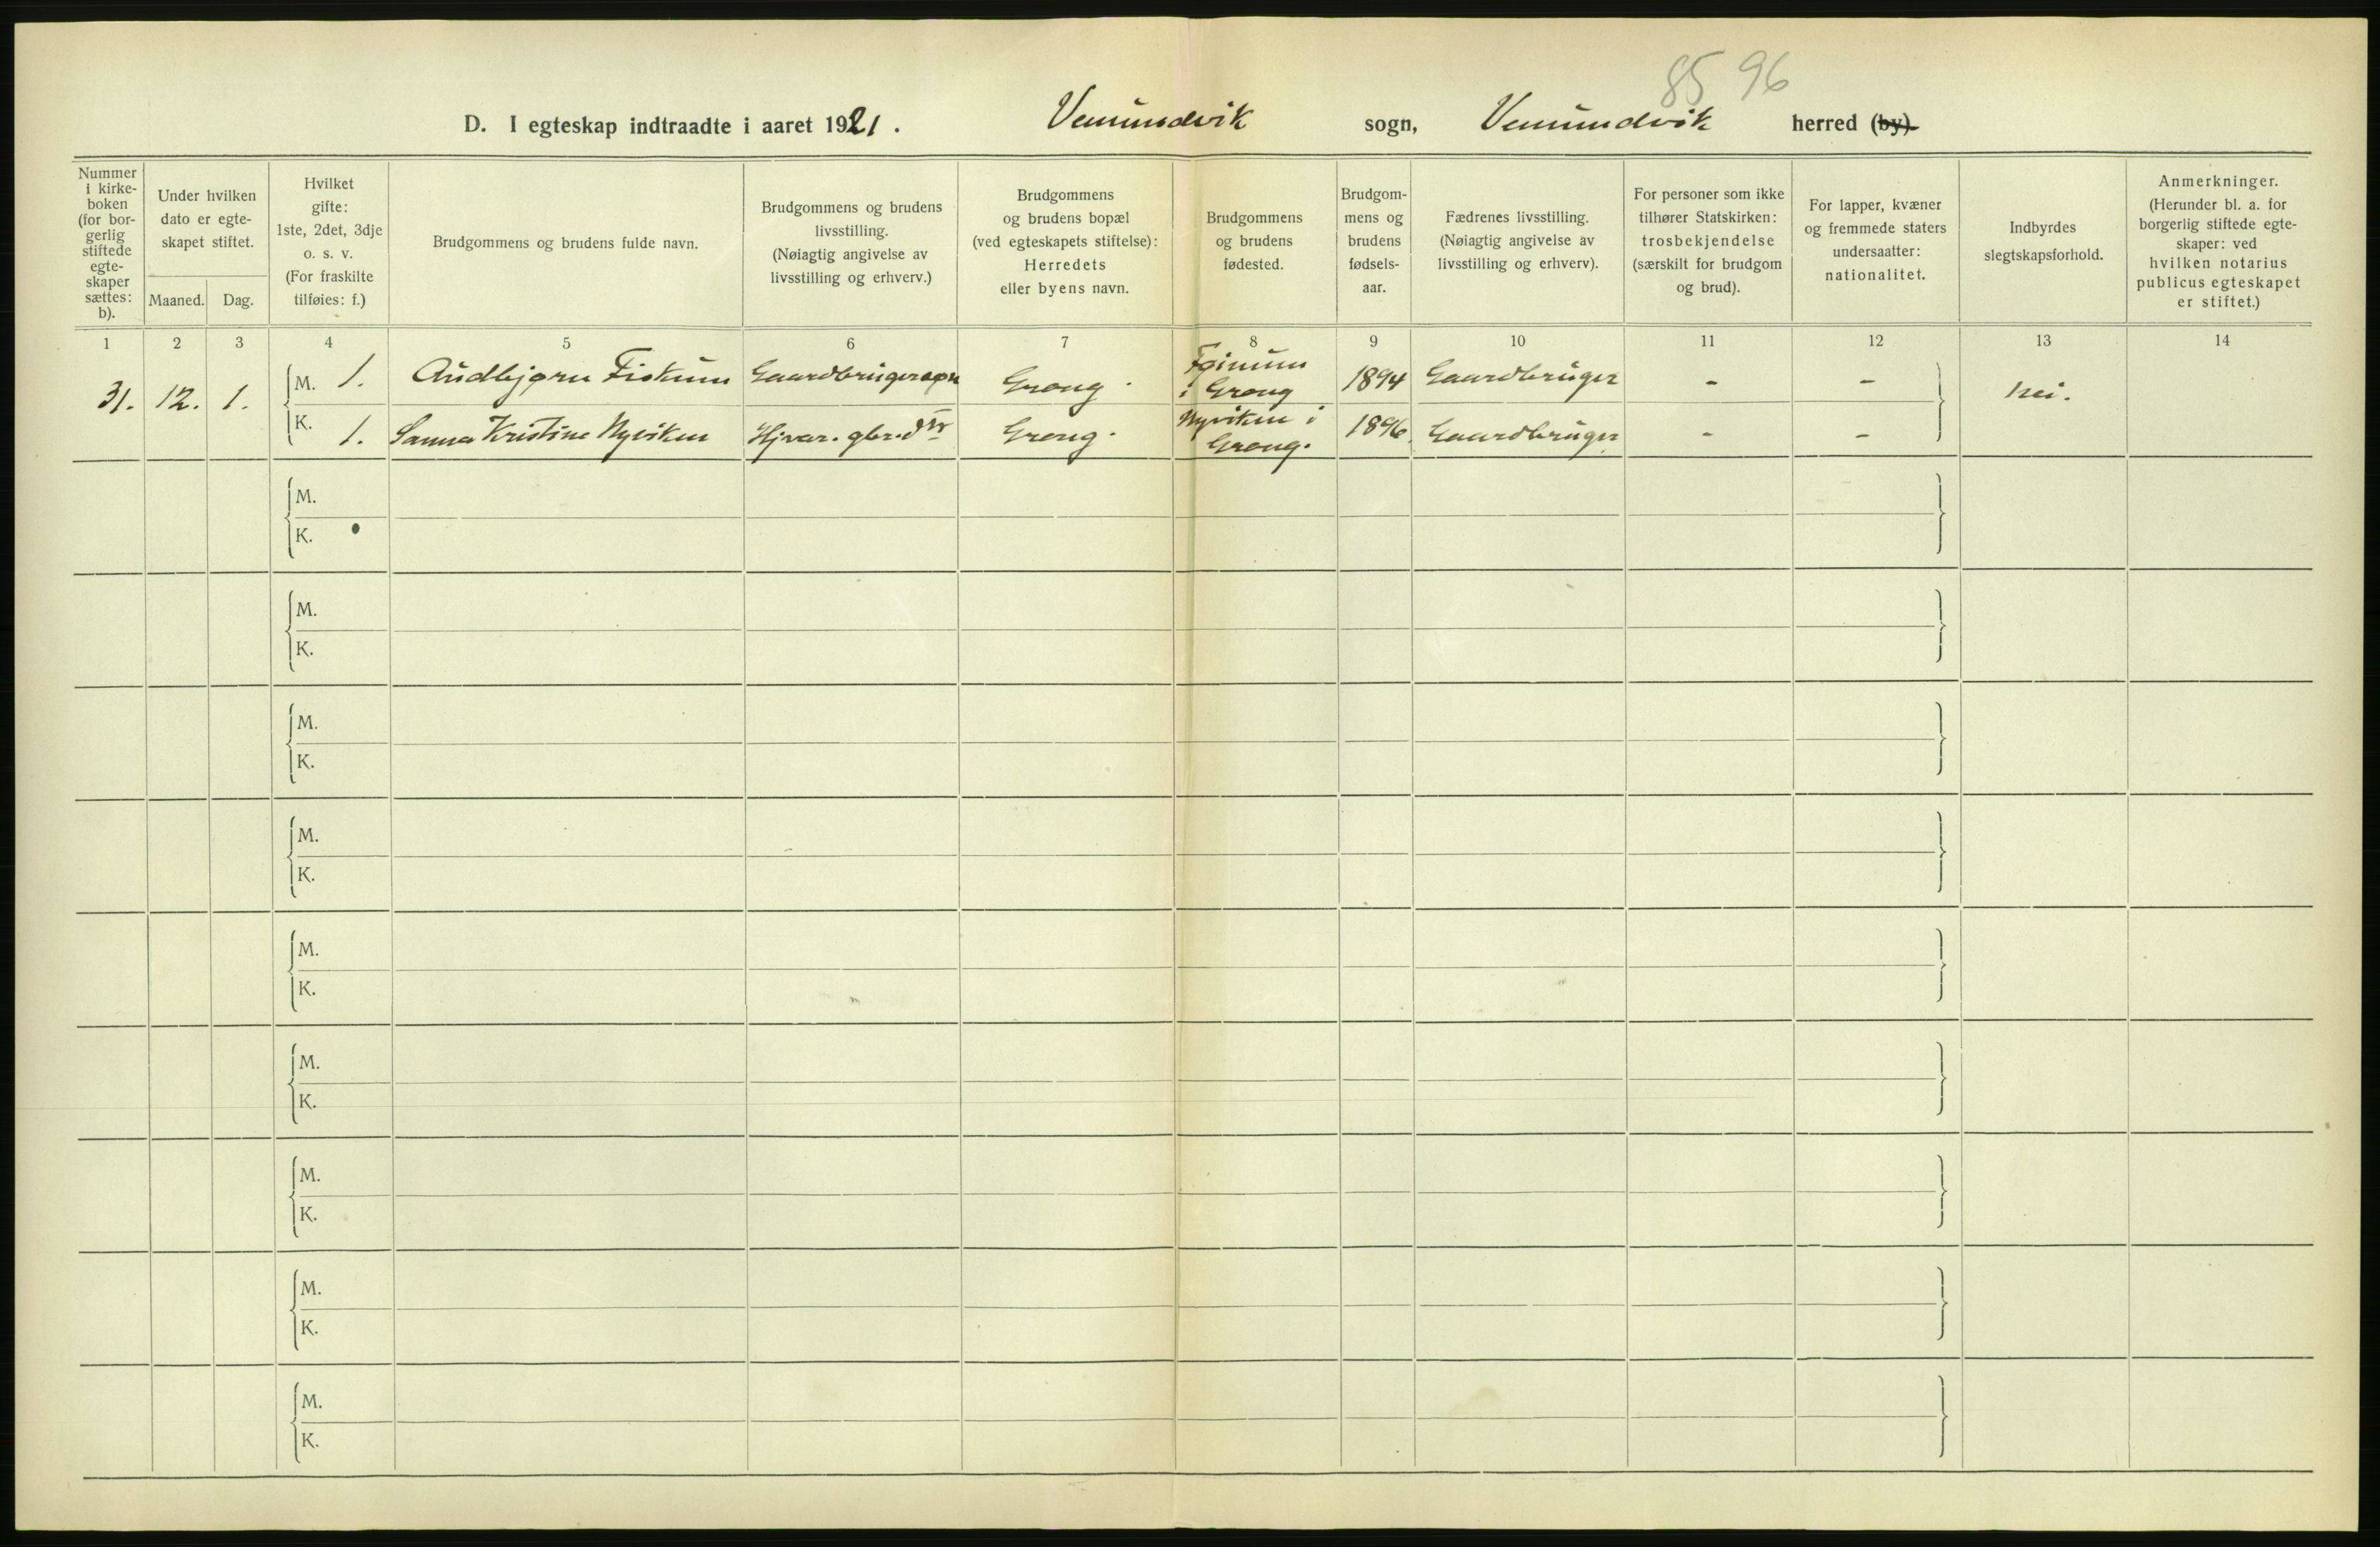 85 96
D. I egteskap indtraadte i aaret 1921. Vemundvik sogn, Vemundvik herred (by).
Nummer i kirke-boken (for bor-gerlig stiftede egte-skaper sættes: b).
Under hvilken dato er egte-skapet stiftet.
Maaned. Dag.
Hvilket gifte: 1ste, 2det, 3dje o. s. v. (For fraskilte tilføies: f.)
Brudgommens og brudens fulde navn.
Brudgommens og brudens livsstilling. (Nøiagtig angivelse av livsstilling og erhverv.)
Brudgommens og brudens bopæl (ved egteskapets stiftelse): Herredets eller byens navn.
Brudgommens og brudens fødested.
Brudgom-mens og brudens fødsels-aar.
Fædrenes livsstilling. (Nøiagtig angivelse av livsstilling og erhverv).
For personer som ikke tilhører Statskirken: trosbekjendelse (særskilt for brudgom og brud).
For lapper, kvæner og fremmede staters undersaatter: nationalitet.
Indbyrdes slegtskapsforhold.
Anmerkninger. (Herunder bl. a. for borgerlig stiftede egte-skaper: ved hvilken notarius publicus egteskapet er stiftet.)
1 2 3 4 5 6 7 8 9 10 11 12 13 14
31. 12. 1. M. 1. Audbjørn Fiskum Gaardbrugersøn Grong. i Grong 1894 Gaardbruger - - nei.
K. 1. Sanna Kristine Nyviken Hjvær. gbr. dtr Grong. Nyviken i Grong. 1896. Gaardbruger - -
M.
K.
M.
K.
M.
K.
M.
K.
M.
K.
M.
K.
M.
K.
M.
K.
M.
K.